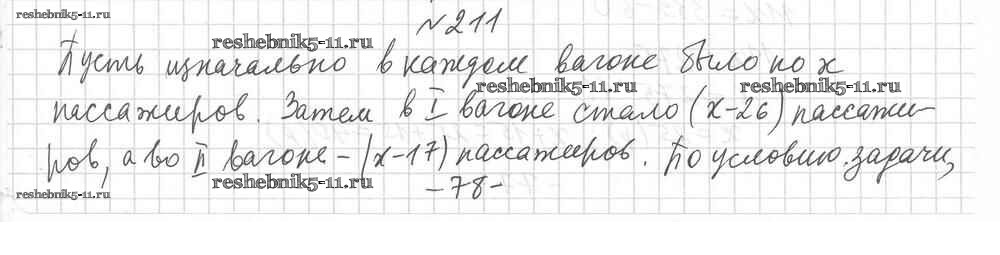 reshebnik5-11.ru
№211
reshebnik5-11.ru
Пусть изначально в каждом вагоне было по x
reshebnik5-11.ru reshebnik5-11.ru
пассажиров. Затем в I вагоне стало (x-26) пассажи-
ров, а во II вагоне - (x-17) пассажиров. По условию задачи,
reshebnik5-11.ru
-78-
reshebnik5-11.ru